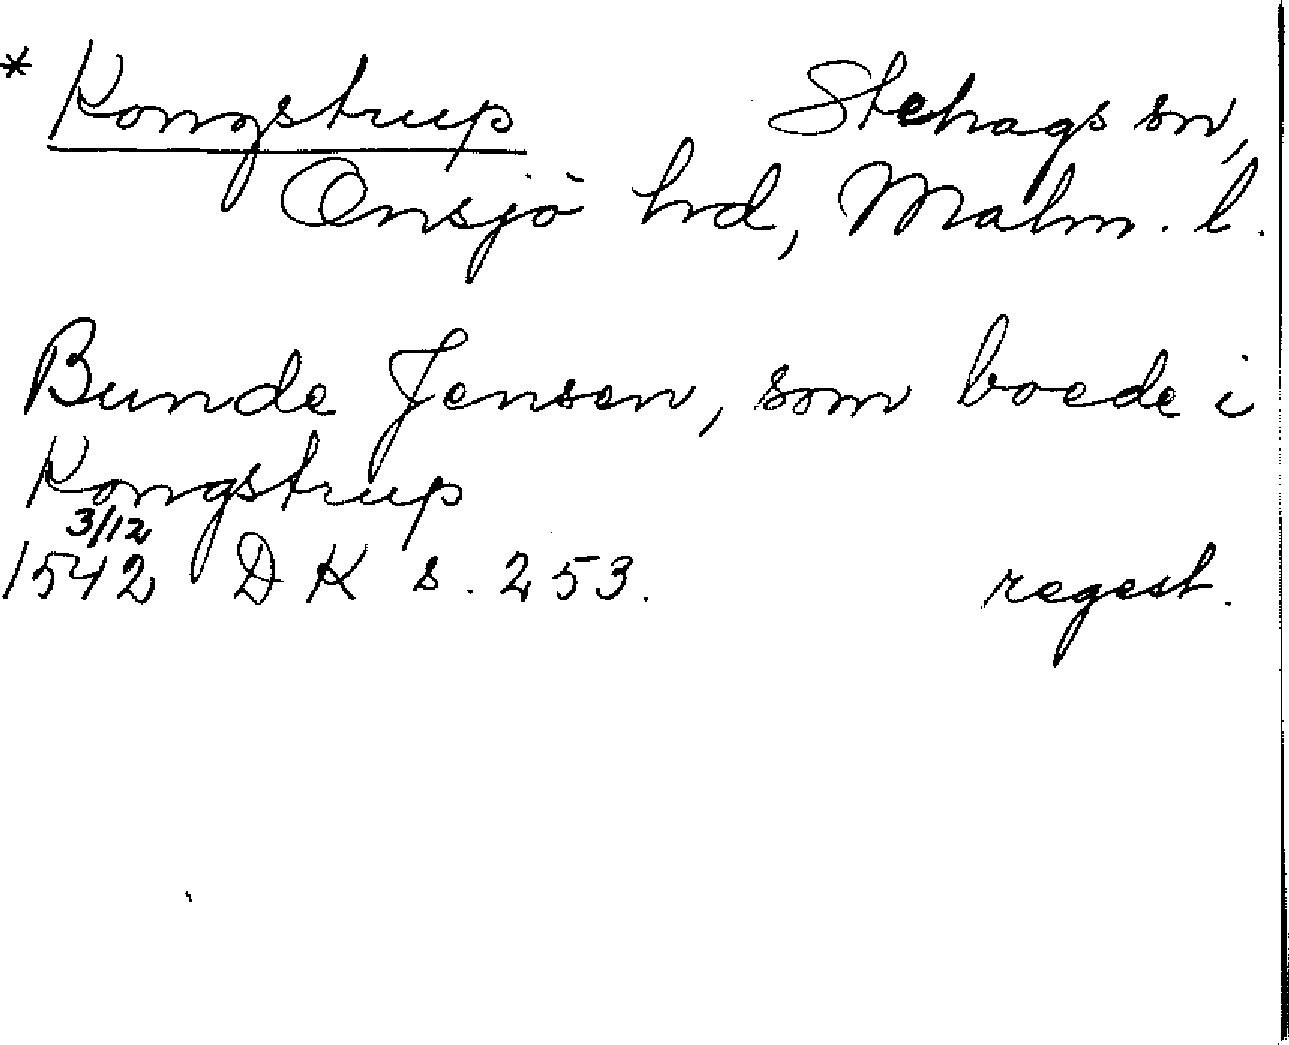 * Kongstrup Stehags sn,
Onsjö hrd, Malm. l.
Bunde Jensen, som boede i
Kongstrup
3/12
1542 DK s. 253. regest.